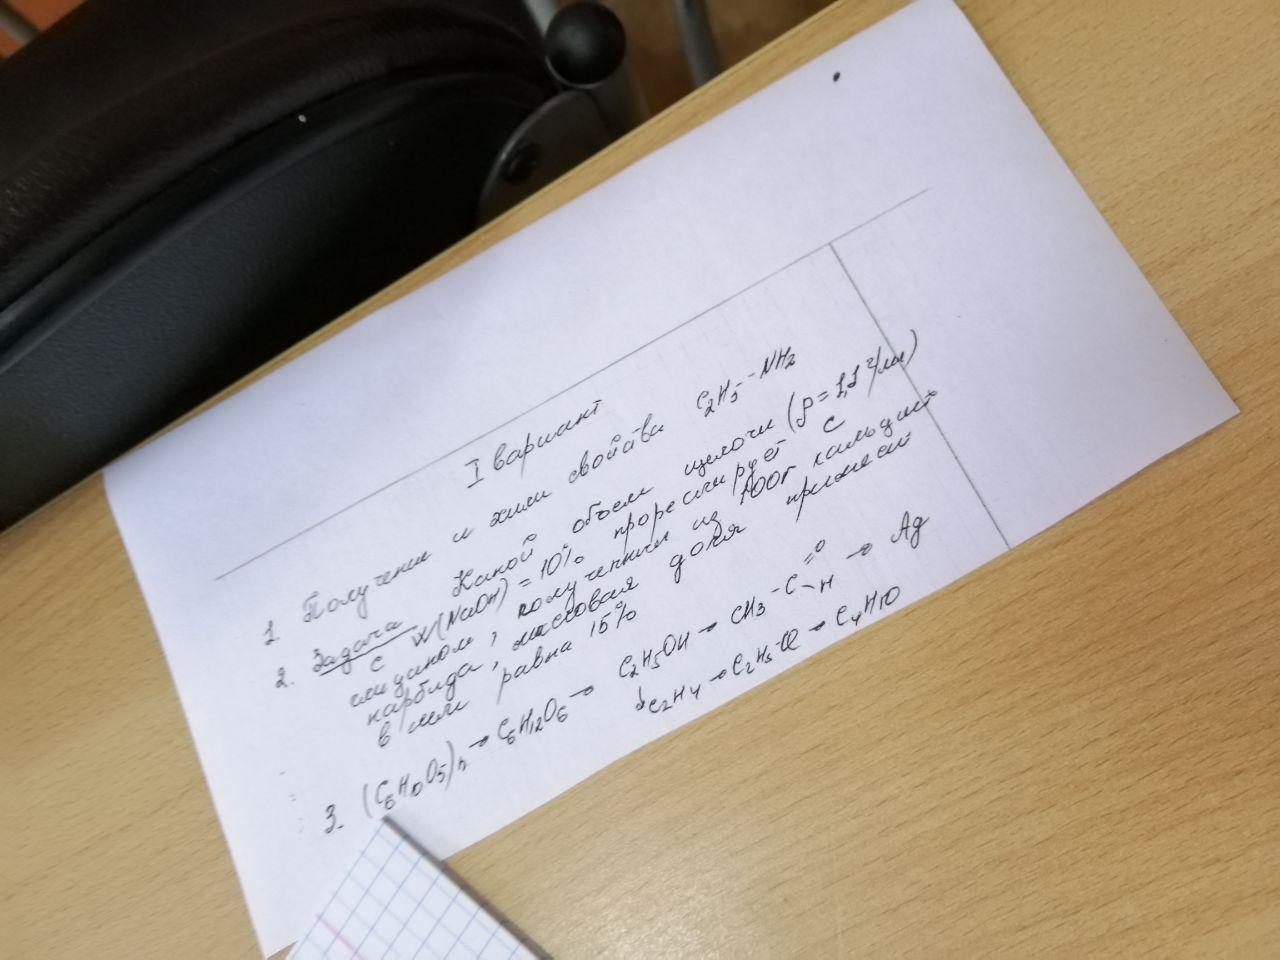 I вариант
1. Получение и хим свойства C2H5-NH2
2. Задача Какой объем щелочи (ρ=1,1 г/мл)
с W(NaOH)=10% прореагирует с
глицином, полученным из 100г кальций
карбида, массовая доля примесей
в нем равна 15%
3. (C6H10O5)n → C6H12O6 → C2H5OH → CH3-C=O-H → Ag
↓C2H4 → C2H5Cl → C4H10